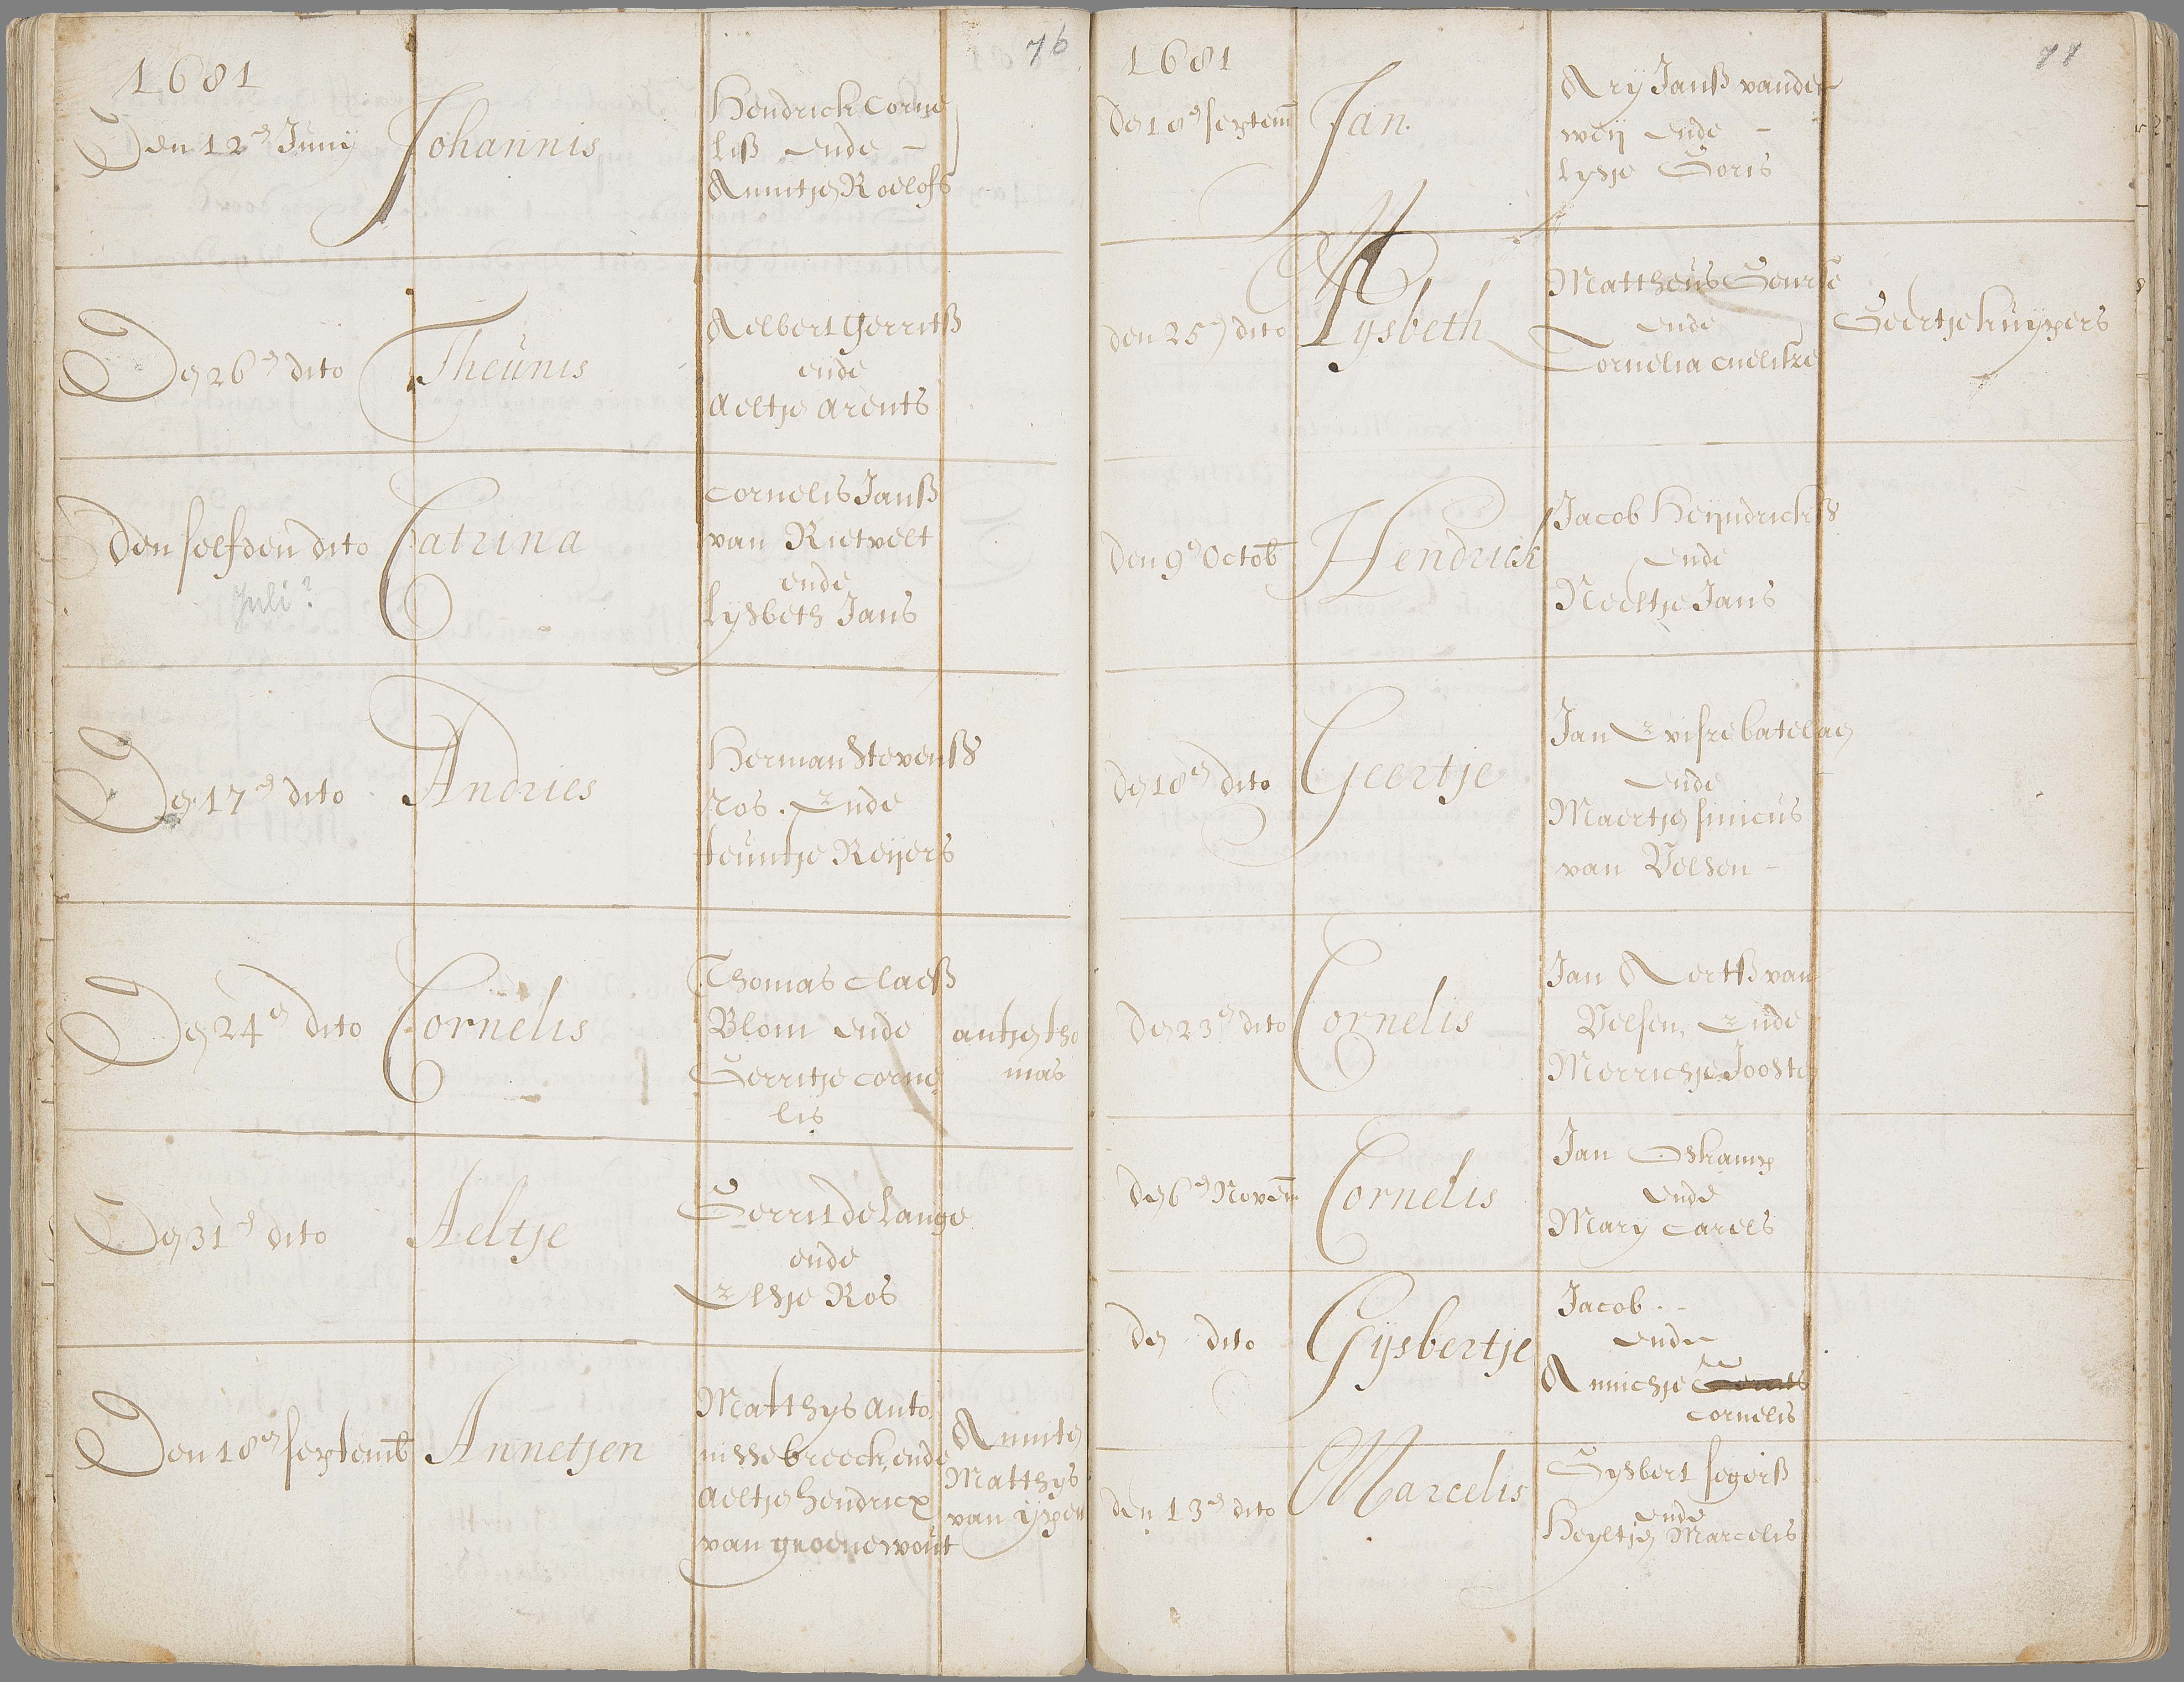 76
1681
Den 12en Junij Johannis
Hendrick Corne
liß ende
Anntjen Roelofs
Den 26en dito Theunis
Aelbert Gerritß
ende
Aeltje Arents
Den selfden dito Catrina
Juli?
Cornelis Janß
van Rietvelt
ende
Lysbeth Jans
Den 17en dito Andries
Herman Stevenß
Ros. Ende
teuntje Reijers
Den 24en dito Cornelis
Thomas Claeß
Blom ende
Gerritje Corne
lis
antjen tho
mas
Den 31en dito Aeltje
Gerrit de Lange
ende
Elsje Ros
Den 18en septemb Annetjen
Matthys Anto
nisse breeck, ende
Aeltjen Hendricx
van groenewout
Annitjen
Matthys
van ijpen
77
1681
Den 18en septem Jan
Ary Janß vander
weij ende
Lysje Goris
den 25en dito Lysbeth
Mattheus
ende
Cornelia
Geertje kuijpers
Den 9en Octob Hendrick
Jacob Heijndrickß
ende
Neeltje Jans
Den 18en dito Geertje
Jan
ende
Maertjen
van Velsen
Den 23en dito Cornelis
Jan Aertß van
Velsen, Ende
Merrichje Joosten
Den 6en Novem Cornelis
Jan Oskamp
ende
Marij Carels
Den dito Gijsbertje
Jacob
ende
Annichje
Cornelis
den 13en dito Marcelis
Gysbert segerß
ende
Heyltjen Marcelis